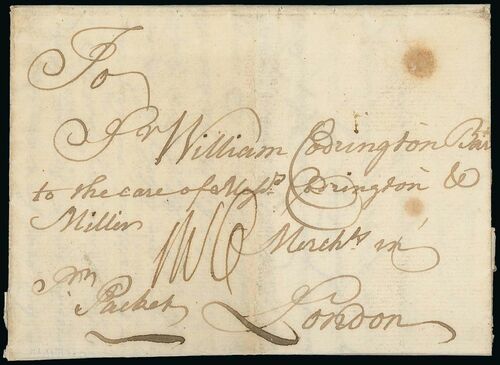 To
Sr William Codrington Bar
to the care of Messrs Codrington &
Miller Merchts in
Packet London